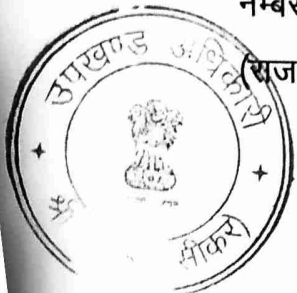 नम्बर
(राज
उपखण्ड अधिकारी
सीकर)